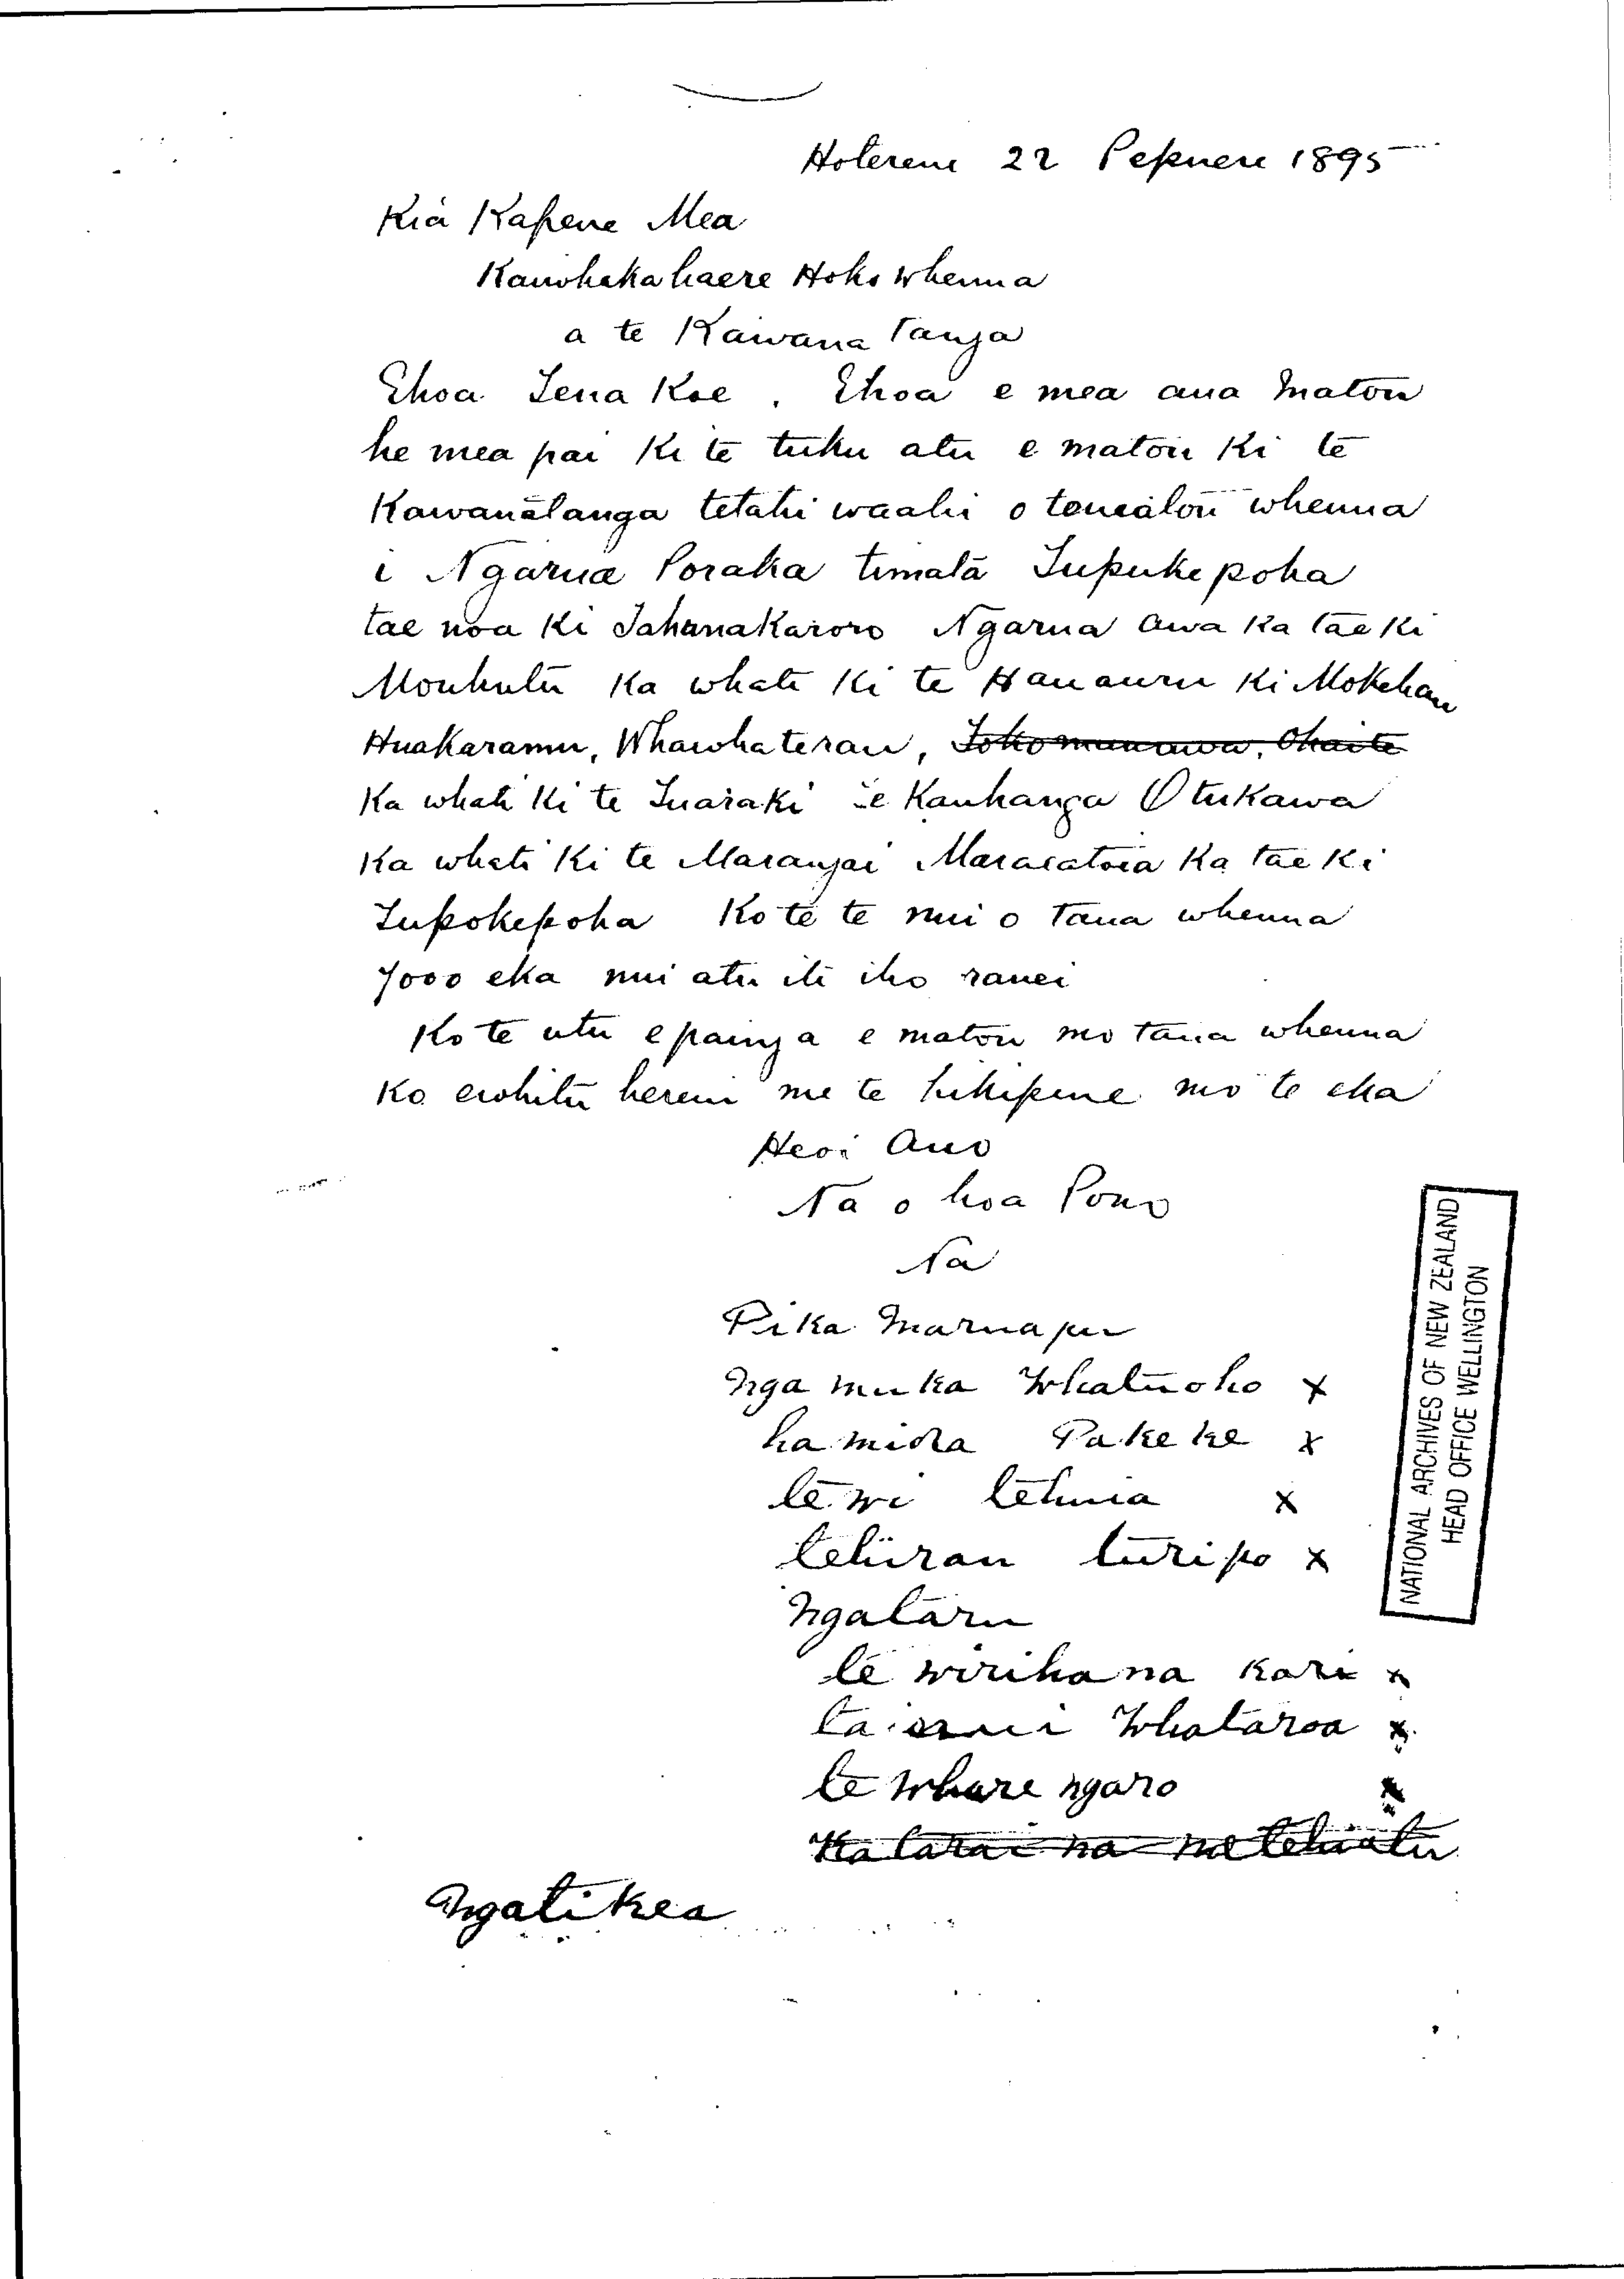 Hoterene 22 Pepuere 1895
Kia Kapene Mea
Kaiwhakahaere Hoko Whenua
a te Kawana Tanga
Ehoa Tena Koe. Ehoa e mea ana matou
he mea pai Ki te tuku atu e matou Ki te
Kawanatanga tetahi waahi o to matou whenua
i Ngarua Poraka timata Tupukepoha
tae noa Ki Tahanakaroro Ngarua Awa Ka tae Ki
Ka whati Ki te Hauauru Ki Mokehau
Huakaramu, Whawhaterau,
Ka whati Ki te Tuaraki Te Kauhanga Otukawa
Ka whati Ki te Marangai Ka tae Ki
Tupokepoha Ko te te nui o taua whenua
7000 eka nui atu iti iho ranei
Ko te utu e painga e matou mo taua whenua
Ko ewhitu hereni me te hikipene mo te eka
Heoi Ano
Na o hoa Pono
Na
Pika Maruapu
Nga muka Whatuoho x
hamiora Pakeke x
te wi tehuia x
tehurau turipo x
Ngataru
te wirihana Kari x
Whataroa x
te Whare ngaro x
Ngatikea
NATIONAL ARCHIVES OF NEW ZEALAND
HEAD OFFICE WELLINGTON